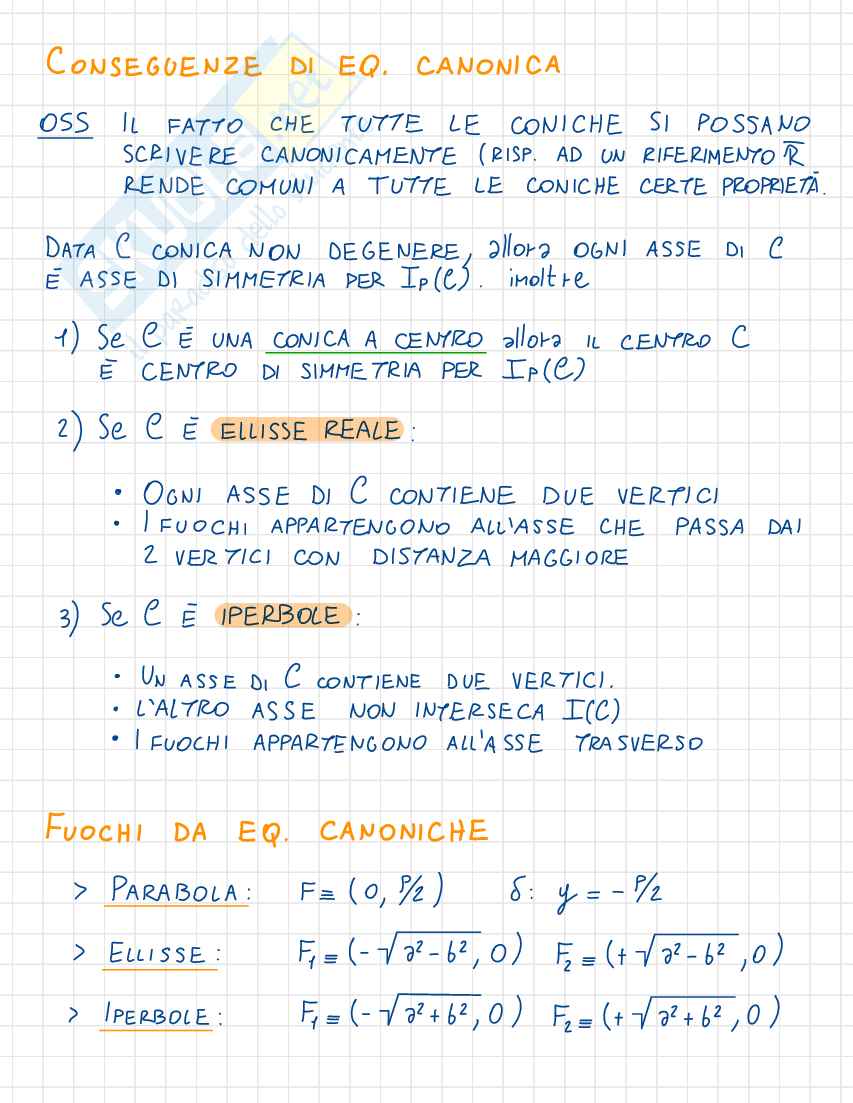 CONSEGUENZE DI EQ. CANONICA
OSS IL FATTO CHE TUTTE LE CONICHE SI POSSANO
SCRIVERE CANONICAMENTE (RISP. AD UN RIFERIMENTO R̅
RENDE COMUNI A TUTTE LE CONICHE CERTE PROPRIETÀ.
DATA C CONICA NON DEGENERE, allora OGNI ASSE DI C
È ASSE DI SIMMETRIA PER Ip(C). inoltre
1) Se C È UNA CONICA A CENTRO allora IL CENTRO C
È CENTRO DI SIMMETRIA PER Ip(C)
2) Se C È ELLISSE REALE:
• OGNI ASSE DI C CONTIENE DUE VERTICI
• I FUOCHI APPARTENGONO ALL'ASSE CHE PASSA DAI
2 VERTICI CON DISTANZA MAGGIORE
3) Se C È IPERBOLE:
• UN ASSE DI C CONTIENE DUE VERTICI.
• L'ALTRO ASSE NON INTERSECA I(C)
• I FUOCHI APPARTENGONO ALL'ASSE TRASVERSO
FUOCHI DA EQ. CANONICHE
> PARABOLA: F≡(0, P/2) δ: y = - P/2
> ELLISSE: F₁≡(-√a²-b², 0) F₂≡(+√a²-b², 0)
> IPERBOLE: F₁≡(-√a²+b², 0) F₂≡(+√a²+b², 0)